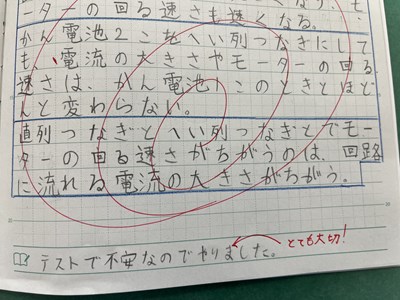 ーターの回る速さも速くなる。
かん電池2こをへい列つなぎにして
も、電流の大きさやモーターの回る
速さは、かん電池1このときとほと
んど変わらない。
直列つなぎとへい列つなぎとでモー
ターの回る速さがちがうのは、回路
に流れる電流の大きさがちがう。
テストで不安なのでやりました。
とても大切!